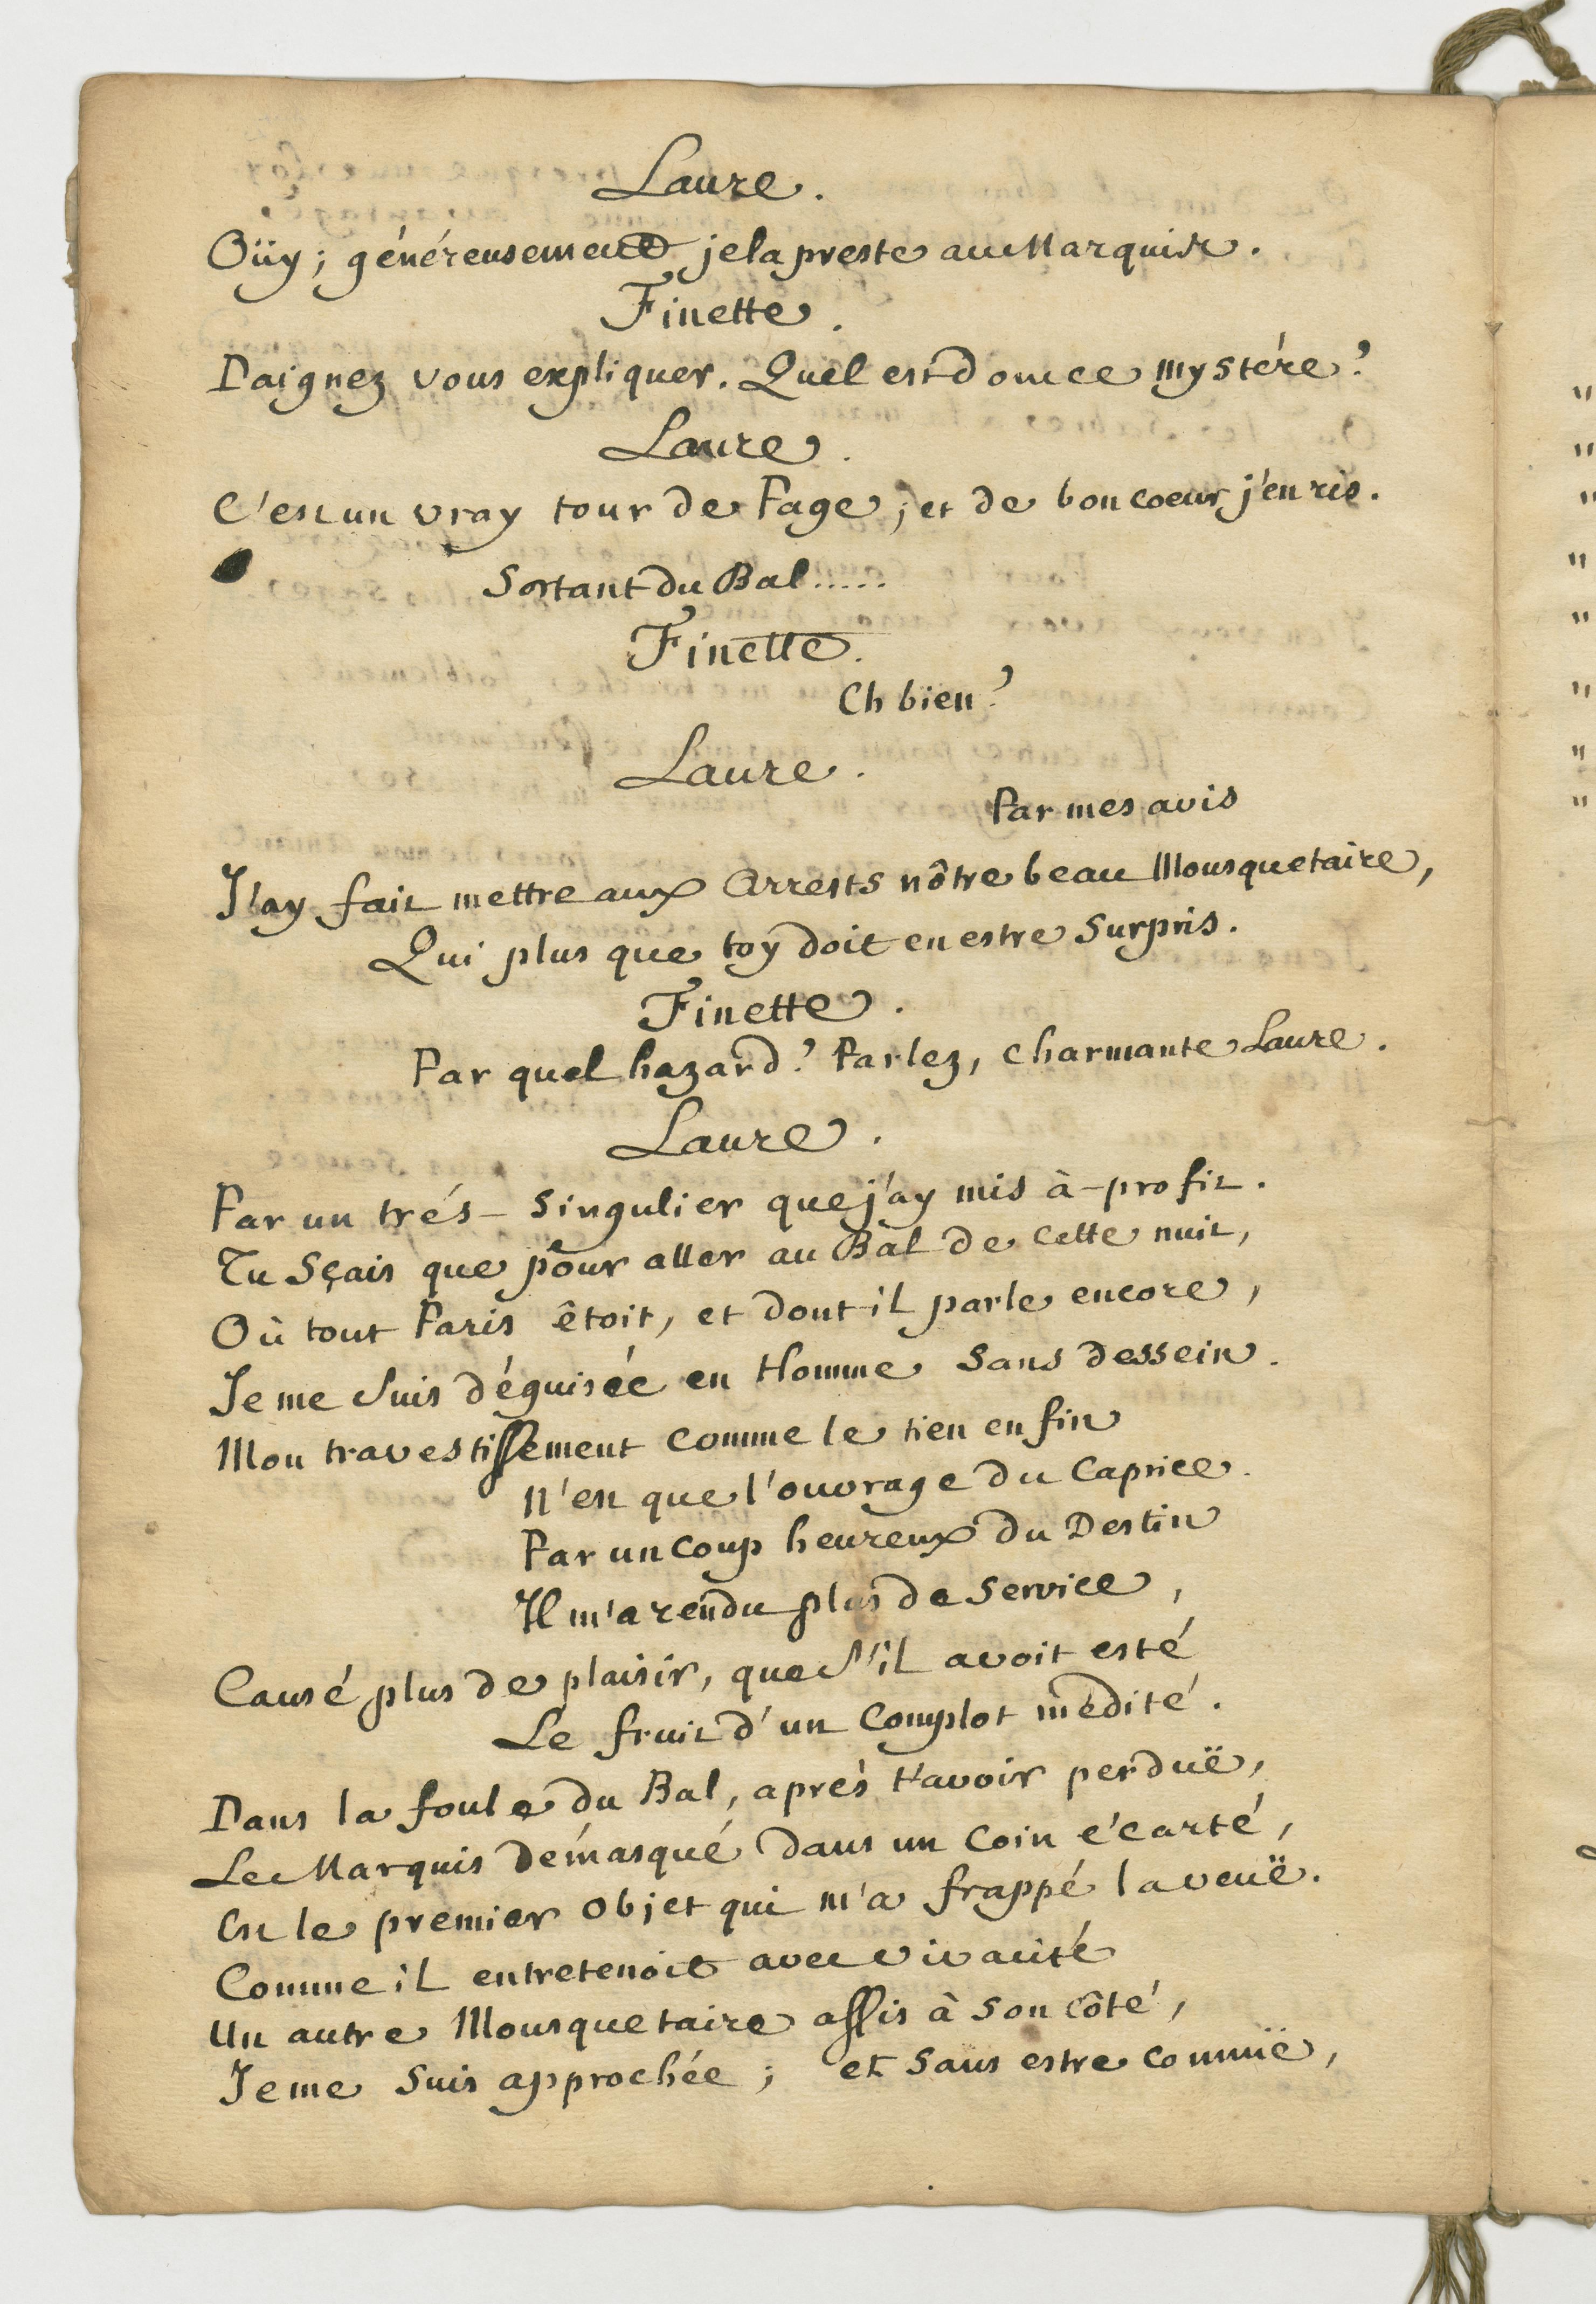 Laure.
Oüy; généreusement je la preste au Marquis.
Finette.
Daignez vous expliquer. Quel est donc ce mystére?
Laure.
C'est un vray tour de Page; et de bon coeur j'en ris.
Sortant du Bal.....
Finette.
Eh bien?
Laure.
Par mes avis
J'ay fait mettre aux Arrests nôtre beau Mousquetaire,
Qui plus que toy doit en estre surpris.
Finette.
Par quel hazard? Parlez, charmante Laure.
Laure.
Par un trés-singulier que j'ay mis à-profit.
Tu sçais que pour aller au Bal de cette nuit,
Où tout Paris êtoit, et dont il parle encore,
Je me suis déguisée en Homme sans dessein.
Mon travestissement comme le tien enfin
N'est que l'ouvrage du Caprice.
Par un coup heureux du Destin
Il m'a rendu plus de service,
Causé plus de plaisir, que s'il avoit esté
Le fruit d'un Complot médité.
Dans la foule du Bal, aprés t'avoir perduë,
Le Marquis démasqué dans un coin écarté,
Est le premier objet qui m'a frappé la veuë.
Comme il entretenoit avec vivacité
Un autre Mousquetaire assis à son côté,
Je me suis approchée; et sans estre connuë,
"
"
"
"
"
"
"
"